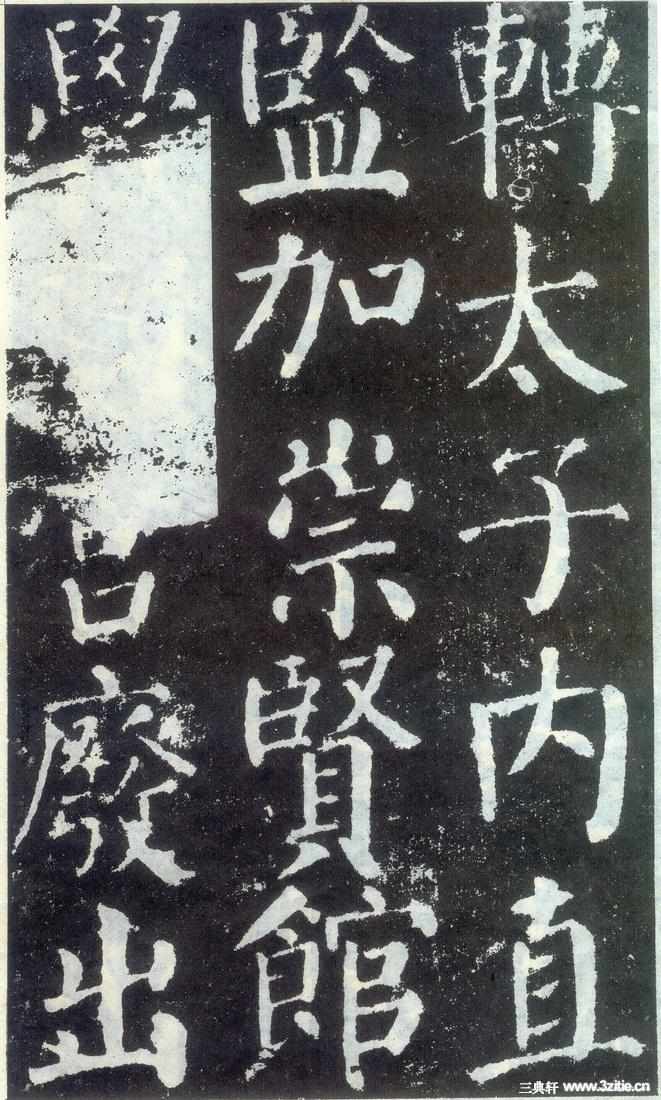 轉太子内直
監加崇賢館
學宮廢出
三典轩 www.3zitie.cn